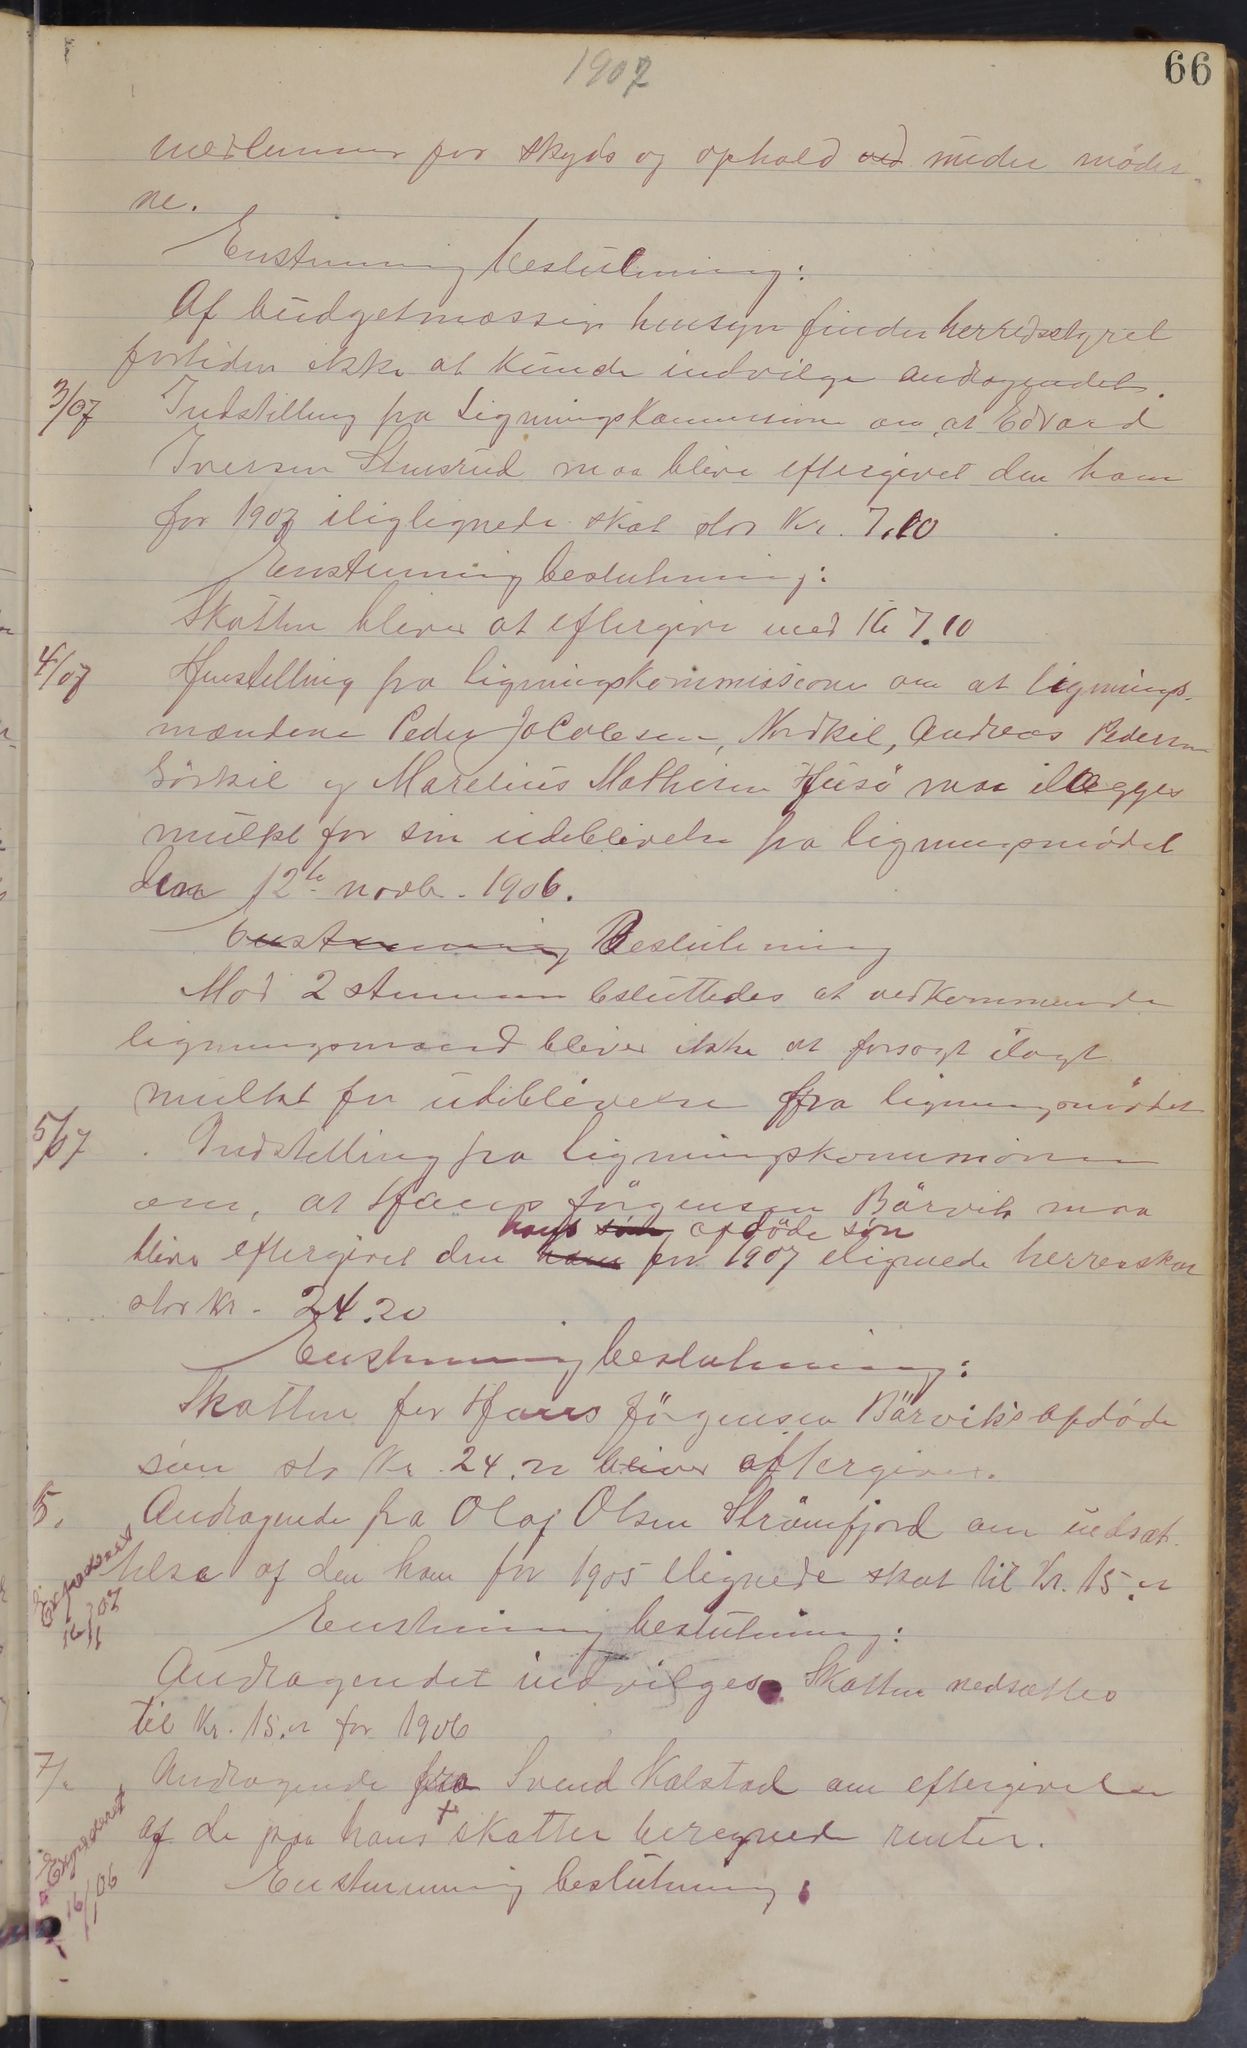 1907
66
medlemmer for skyds og ophold ved under möder-
ne.
Enstemmig beslutning:
Af budgetmæssige hensyn finder herredsstyret
fortiden ikke at kunde indvilge andragendet.
3/07 Indstilling fra Ligningskommissionen om, at Edvard
Iversen Stensrud maa blive eftergivet den ham
for 1907 iliglignede skat stor Kr. 7.10
Enstemmig beslutning:
Skatten bliver at eftergive med Kr 7.10
4/07 Henstilling fra ligningskommissionen om at lignings-
mændene Peder Jacobsen, Nordkil, Andreas Pedersen
Sörkil og Marelius Mathisen Husö maa ilægges
mulkt for sin udeblivelse fra ligningsmödet
den 12te novbr. 1906.
Enstemmig Beslutning
Mod 2 stemmer besluttedes at vedkommende
ligningsmænd bliver ikke at forsøgt ilagt
mulkt for udeblivelse fra ligningsmödet
5/07 Indstilling fra ligningskommissionen
om, at Hans Jörgensen Bärvik maa
hans søn afdöde sön
blive eftergivet den ham for 1907 ilignede herredsskat
stor kr. 24.20
Enstemmig beslutning:
Skatten for Hans Jörgensen Bärviks afdöde
sön stor Kr. 24.20 bliver eftergives.
5. Andragende fra Olaf Olsen Strömfjord om nedsæt-
telse af den ham for 1905 ilignede skat til Kr. 15.00
Expederet 16/11 07
Enstemmig beslutning:
Andragendet indvilges. Skatten nedsættes
til Kr. 15.00 for 1906
7/ Andragende fra Svend Kalstad om eftergivelse
af de paa hans skatter beregnede renter.
Expederet 16/1 06
Enstemmig beslutning: